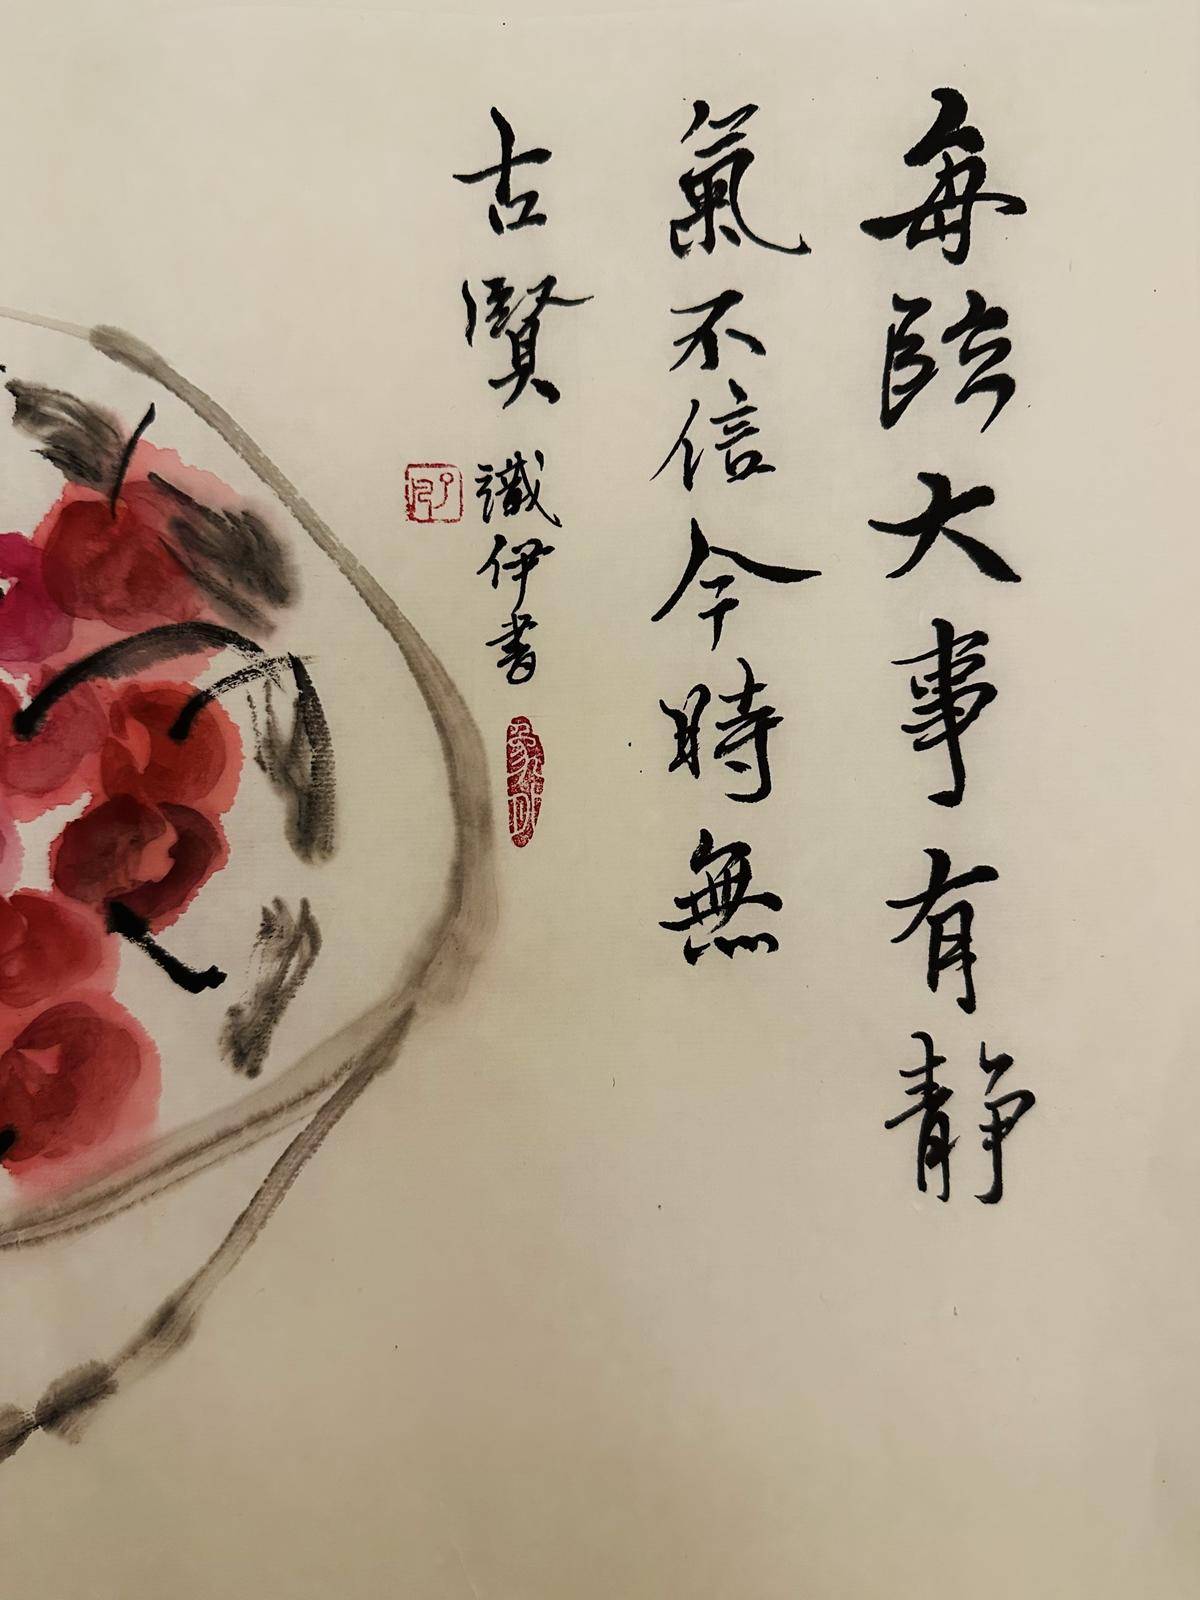 每臨大事有静
氣不信今時無
古賢 識伊書